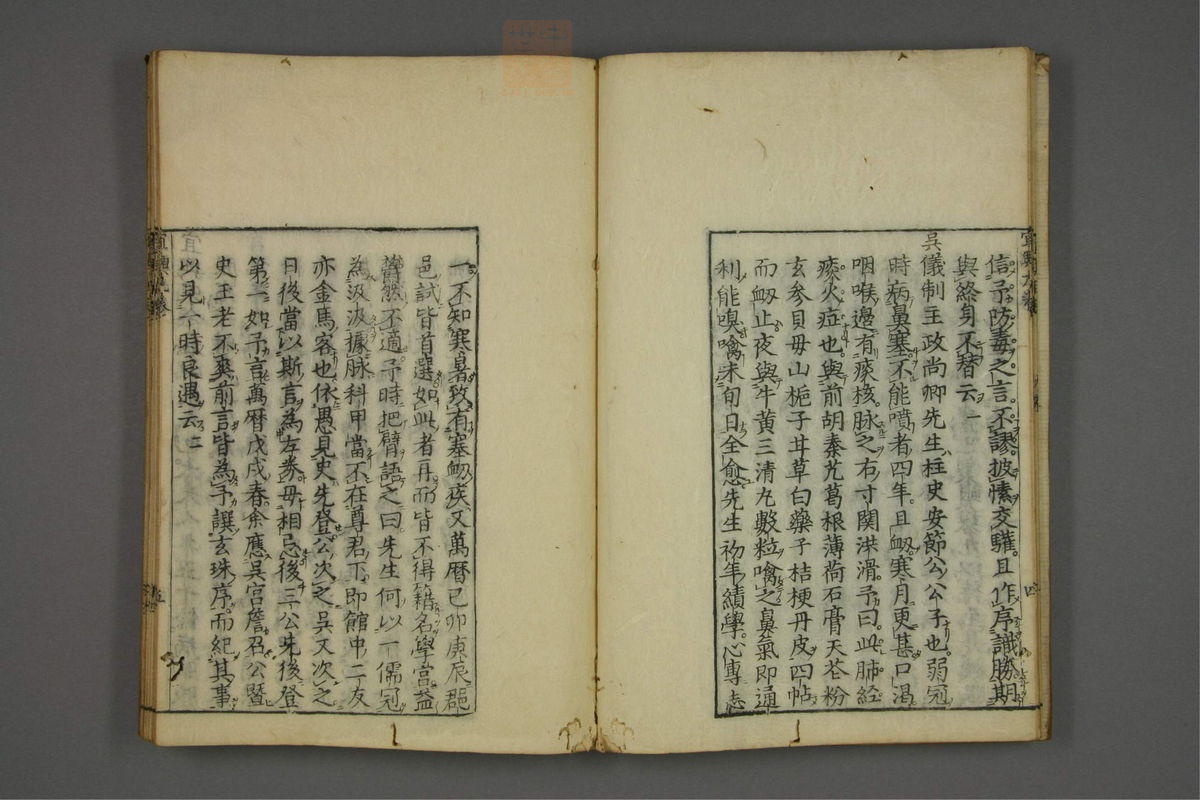 信予防毒之言不謬披愫交驩且作序識勝期
與終身不替云一
吳儀制主政尚卿先生柱史安節公公子也弱冠
時病鼻塞不能嚏者四年且衂寒月更甚口渴
咽喉邊有痰核脉之右寸関洪滑予曰此肺経
痰火症也與前胡秦艽葛根薄荷石膏天花粉
玄参貝母山梔子甘草白藥子桔梗丹皮四帖
而衂止夜與牛黄三清丸數粒噙之鼻氣即通
利能嗅噙未旬日全愈先生初年績學心專志
一不知寒暑致有塞衂疾又萬曆己卯庚辰郡
邑試皆首選如此者再而皆不得籍名學宮益
欝然不適予時把臂語之曰先生何以一儒冠
為汲汲據脉科甲當不在尊君下即館中二友
亦金馬客也依愚見史先登公次之吳又次之
日後當以斯言為左券毋相忘後三公先後登
第一如予言萬曆戊戌春余應吳宮詹召公暨
史王老不爽前言皆為予譔玄珠序而紀其事
以見一時良遇云二